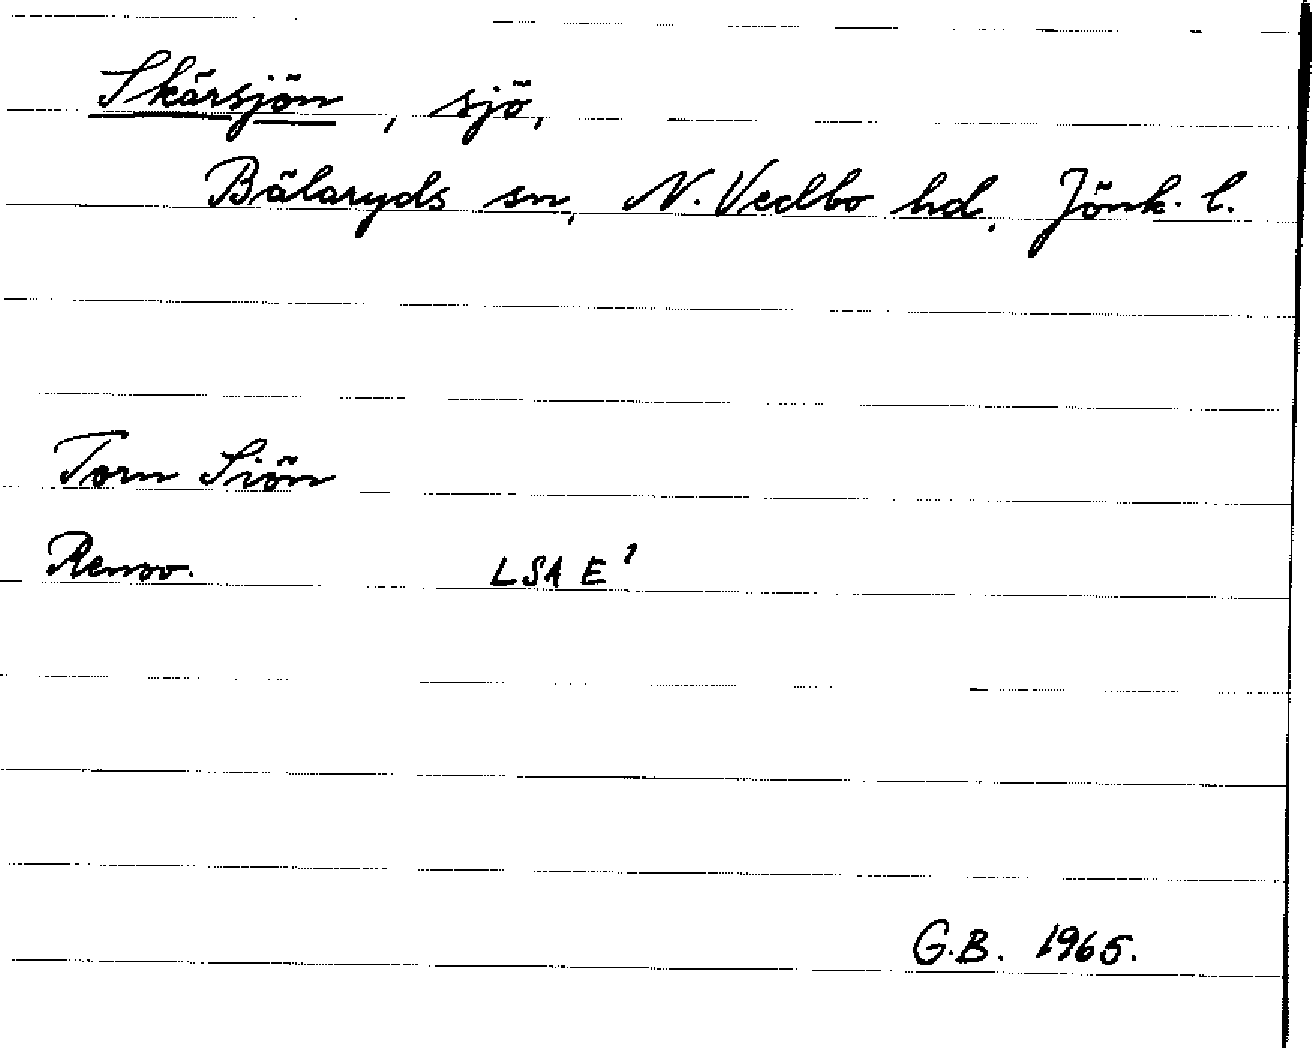 Skärsjön, sjö,
Bälaryds sn, N. Vedbo hd. Jönk. l.
Torn Siön
Renov. LSA E¹
G.B. 1965.